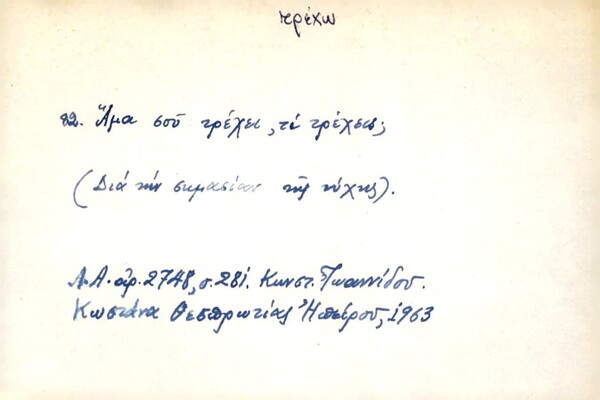 τρέχω
82. Ἅμα σοῦ τρέχει, τί τρέχεις;
(Διά τήν σημασίαν τῆς τύχης).
Λ.Α. ἀρ. 2748, σ. 281. Κωνστ. Ἰωαννίδου.
Κωστάνα Θεσπρωτίας Ἠπείρου, 1963